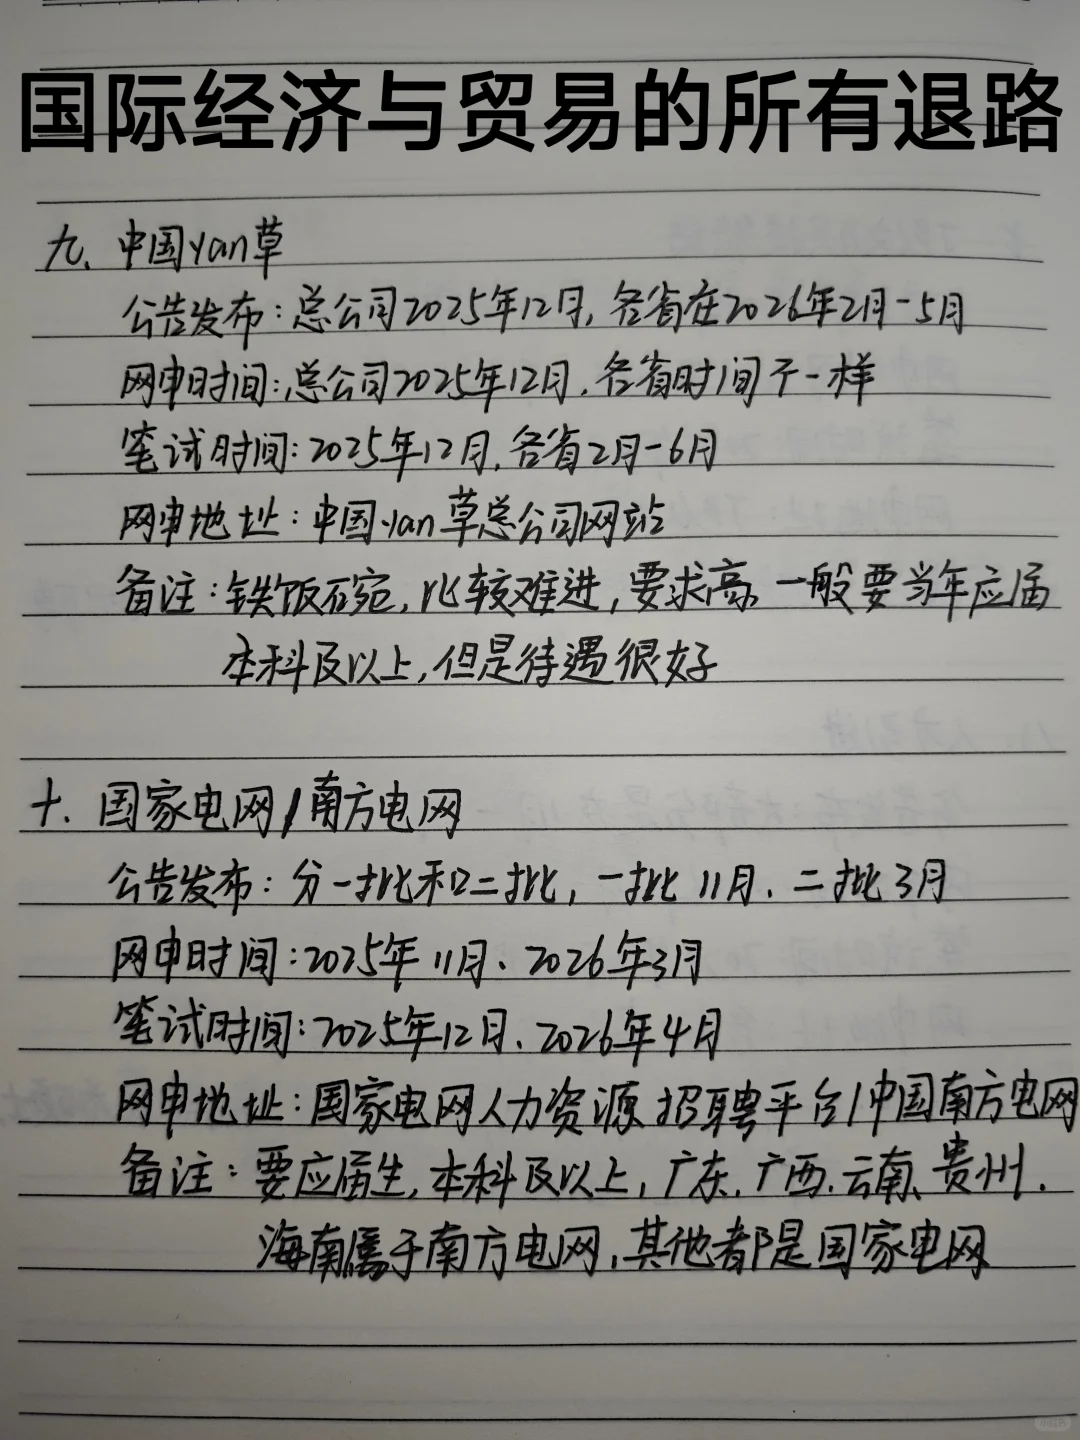 国际经济与贸易的所有退路
九、中国yan草
公告发布：总公司2025年12月，各省在2026年2月-5月
网申时间：总公司2025年12月，各省时间不一样
笔试时间：2025年12月，各省2月-6月
网申地址：中国yan草总公司网站
备注：铁饭碗，比较难进，要求高，一般要当年应届
本科及以上，但是待遇很好
十、国家电网/南方电网
公告发布：分一批和二批，一批11月、二批3月
网申时间：2025年11月、2026年3月
笔试时间：2025年12月、2026年4月
网申地址：国家电网人力资源招聘平台/中国南方电网
备注：要应届生，本科及以上，广东、广西、云南、贵州、
海南属于南方电网，其他都是国家电网